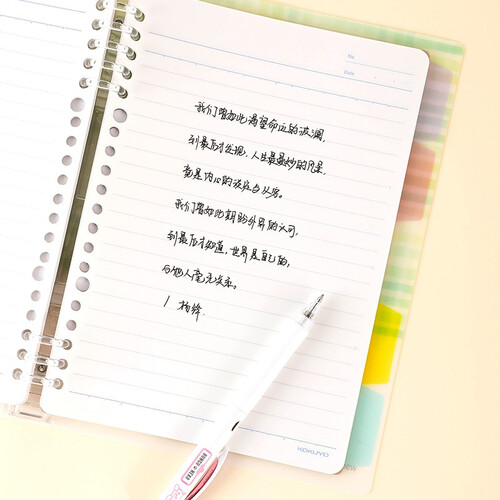 No.
Date
我们曾如此渴望命运的波澜,
到最后才发现,人生最曼妙的风景,
竟是内心的淡定与从容。
我们曾如此期盼外界的认可,
到最后才知道,世界是自己的,
与他人毫无关系。
/ 杨绛.
KOKUYO